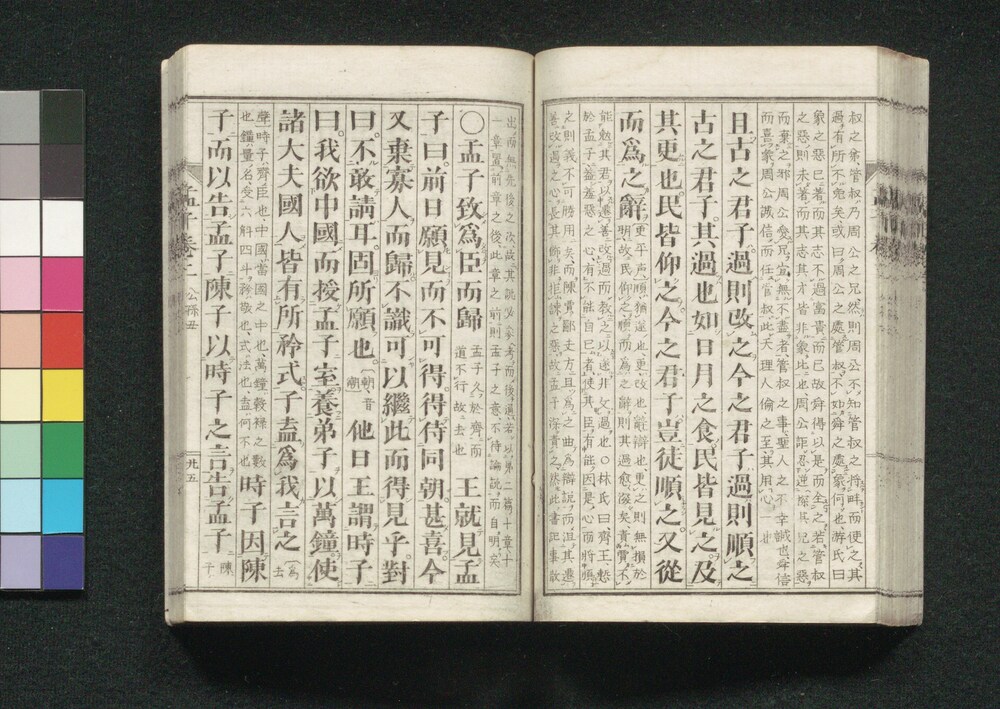 叔之弟管叔乃周公之兄然則周公不知管叔之將畔而使之其
過有所不免矣或曰周公之處管叔不如舜之處象何也游氏曰
象之惡已著而其志不過富貴而已故舜得以是而全之若管叔
之惡則未著而其志其才皆非象比也周公詎忍逆探其兄之惡
而棄之邪周公愛兄宜無不盡者管叔之事聖人之不幸也舜誠信
而喜象周公誠信而任管叔此天理人倫之至其用心一也
且古之君子過則改之今之君子過則順之
古之君子其過也如日月之食民皆見之及
其更也民皆仰之今之君子豈徒順之又從
而爲之辭
更平聲順猶遂也更改也辭辯也更之則無損於
明故民仰之順而爲之辭則其過愈深矣責賈不
能勉其君以遷善改過而教之以遂非文過也○林氏曰齊王慙
於孟子蓋羞惡之心有不能自已者使其臣有能因是心而將順
之則義不可勝用矣而陳賈鄙夫方且爲之曲爲辯說而沮其遷
善改過之心長其飾非拒諫之惡故孟子深責之然此書記事散
出而無先後之次故其說必參考而後通若以第二篇十章十
一章置前章之後此章之前則孟子之意不待論說而自明矣
○孟子致爲臣而歸
孟子久於齊而
道不行故去也
王就見孟
子曰前日願見而不可得得侍同朝甚喜今
又棄寡人而歸不識可以繼此而得見乎對
曰不敢請耳固所願也
朝音
潮
他日王謂時子
曰我欲中國而授孟子室養弟子以萬鐘使
諸大夫國人皆有所矜式子盍爲我言之
爲去
聲時子齊臣也中國當國之中也萬鐘穀祿之數
也鐘量名受六斛四斗矜敬也式法也盍何不也
時子因陳
子而以告孟子陳子以時子之言告孟子
陳
子
孟子卷二
公孫丑
廿五